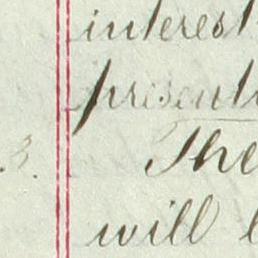 interest
presen
3. The
will